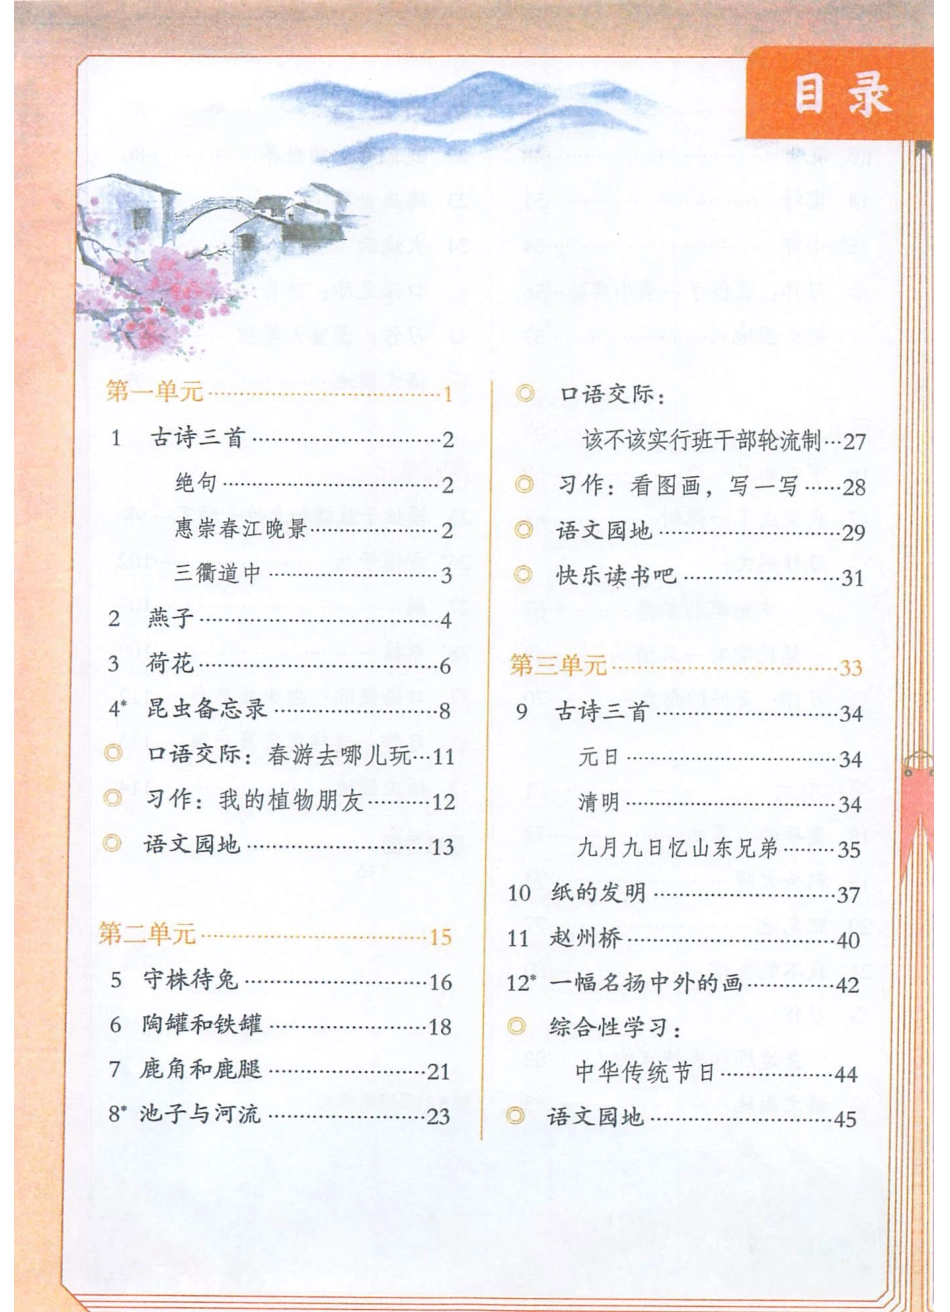 目录
第一单元……1
1 古诗三首……2
绝句……2
惠崇春江晚景……2
三衢道中……3
2 燕子……4
3 荷花……6
4* 昆虫备忘录……8
◎ 口语交际：春游去哪儿玩…11
◎ 习作：我的植物朋友……12
◎ 语文园地……13
第二单元……15
5 守株待兔……16
6 陶罐和铁罐……18
7 鹿角和鹿腿……21
8* 池子与河流……23
◎ 口语交际：
该不该实行班干部轮流制…27
◎ 习作：看图画，写一写……28
◎ 语文园地……29
◎ 快乐读书吧……31
第三单元……33
9 古诗三首……34
元日……34
清明……34
九月九日忆山东兄弟……35
10 纸的发明……37
11 赵州桥……40
12* 一幅名扬中外的画……42
◎ 综合性学习：
中华传统节日……44
◎ 语文园地……45